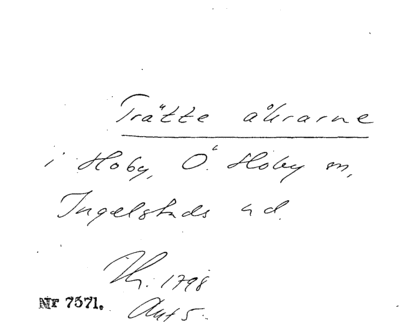 Trätte åkrarne
i Hoby, Ö. Hoby sn,
Ingelstads hd.
1798
Nr 7571.
Akt 5.